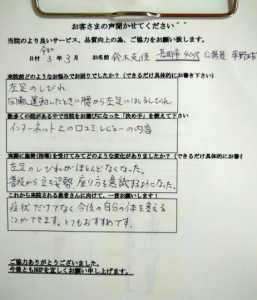 お客さまの声聞かせてください
当院のより良いサービス、品質向上の為、ご協力をお願い致します。
日付 3年3月 お名前 鈴木 長岡市 40代
来院前どのようなお悩みでお困りでしたか？（できるだけ具体的にお書き下さい）
左足のしびれ
日頃、運動したときに腰から左足にはしるしびれ
数多くの院がある中で当院をお選びになった「決め手」を教えて下さい
インターネット上の口コミ、レビューの内容
実際に施術(指導)を受けてみてどのような変化がありましたか？（できるだけ具体的にお書き
左足のしびれがほとんどなくなった。
普段から立ち姿勢、座り方を意識するようになった。
これから来院される患者さんに向けて、一言お願いします！
症状だけでなく今後の自分の体を考える
ことができます。とてもおすすめです。
ご協力ありがとうございました。
今後とも宜しくお願い申し上げます。